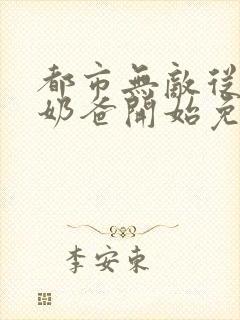 都市無敵從
奶爸開始免
李安東